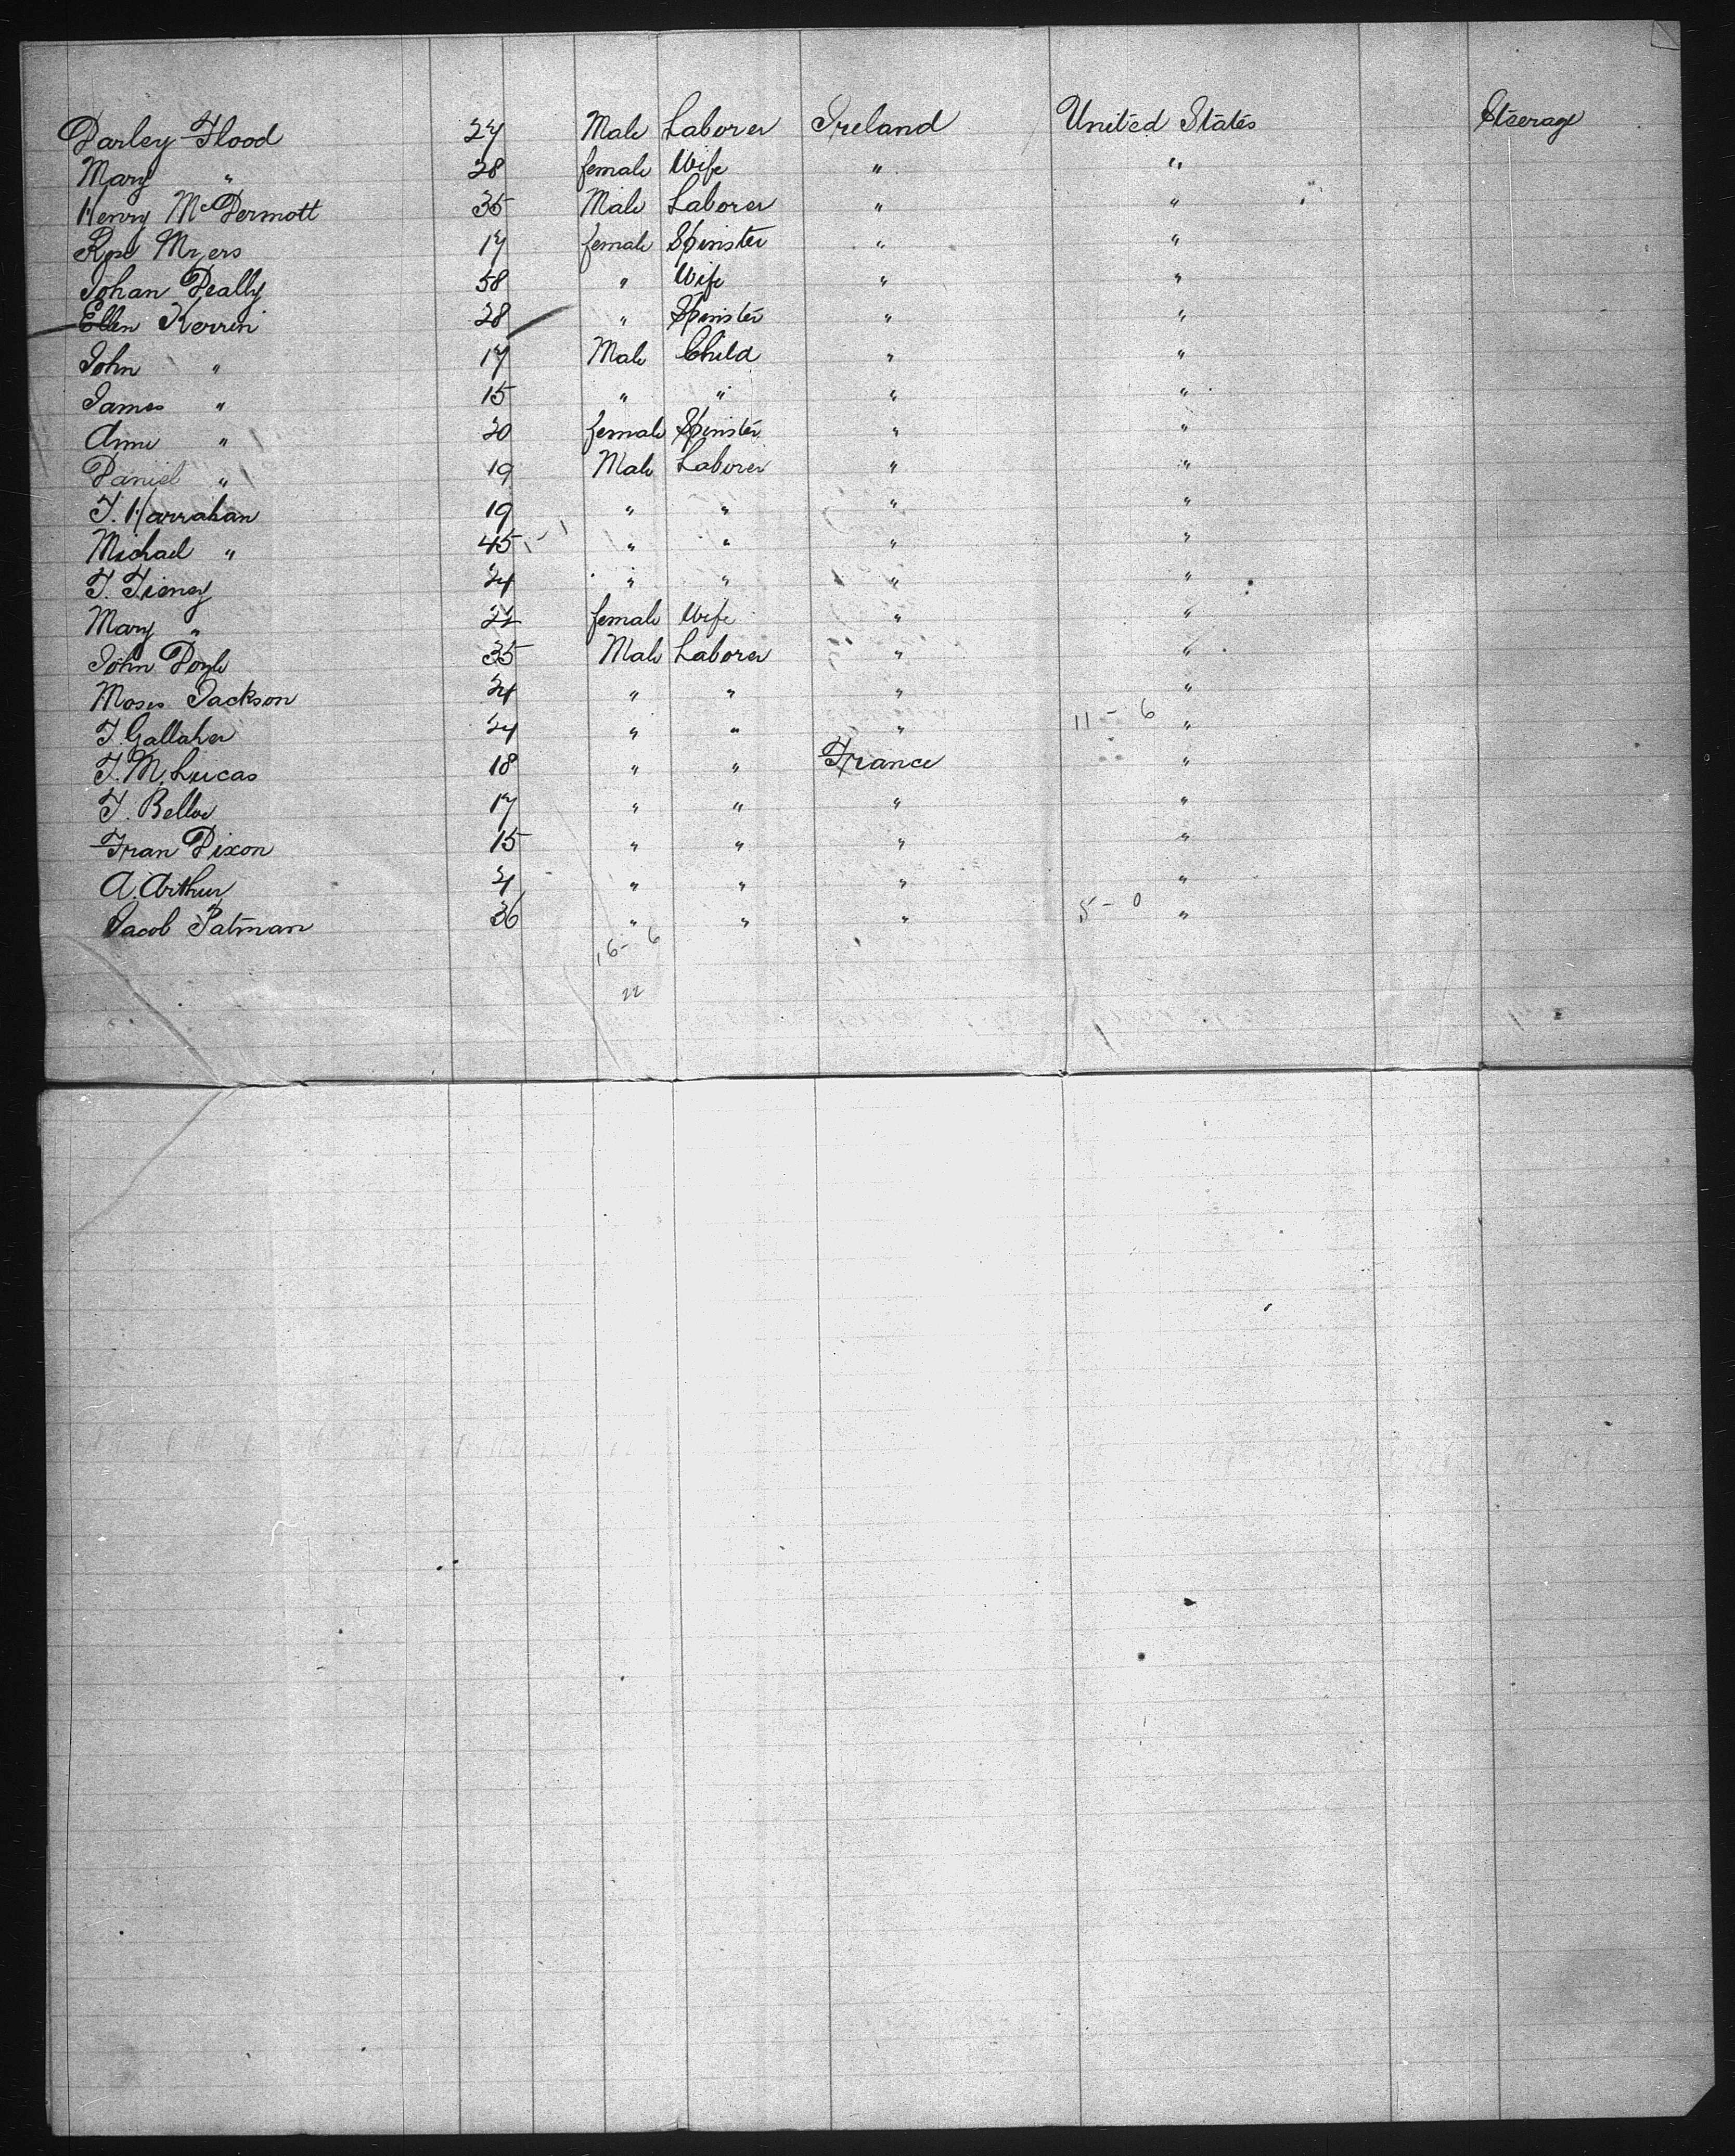 Darley Flood 27 Male Laborer Ireland United States Steerage
Mary " 28 female Wife " "
Henry McDermott 35 Male Laborer " "
Rose Myers 17 female Spinster " "
Johan Deally 58 " Wife " "
Ellen Kerrin 28 " Spinster " "
John " 17 Male Child " "
James " 15 " " " "
Anne " 20 female Spinster " "
Daniel " 19 Male Laborer " "
T. Harrahan 19 " " " "
Michael " 45 " " " "
T. Tieney 24 " " " "
Mary " 22 female Wife " "
John Doyle 35 Male Laborer " "
Moses Jackson 24 " " " "
T. Gallaher 24 " " " 11 - 6 "
T. M. Lucas 18 " " France "
T. Belloe 17 " " " "
Fran Dixon 15 " " " "
A. Arthur 21 " " " "
Jacob Patman 36 " " " 5 - 0 "
16 - 6
22